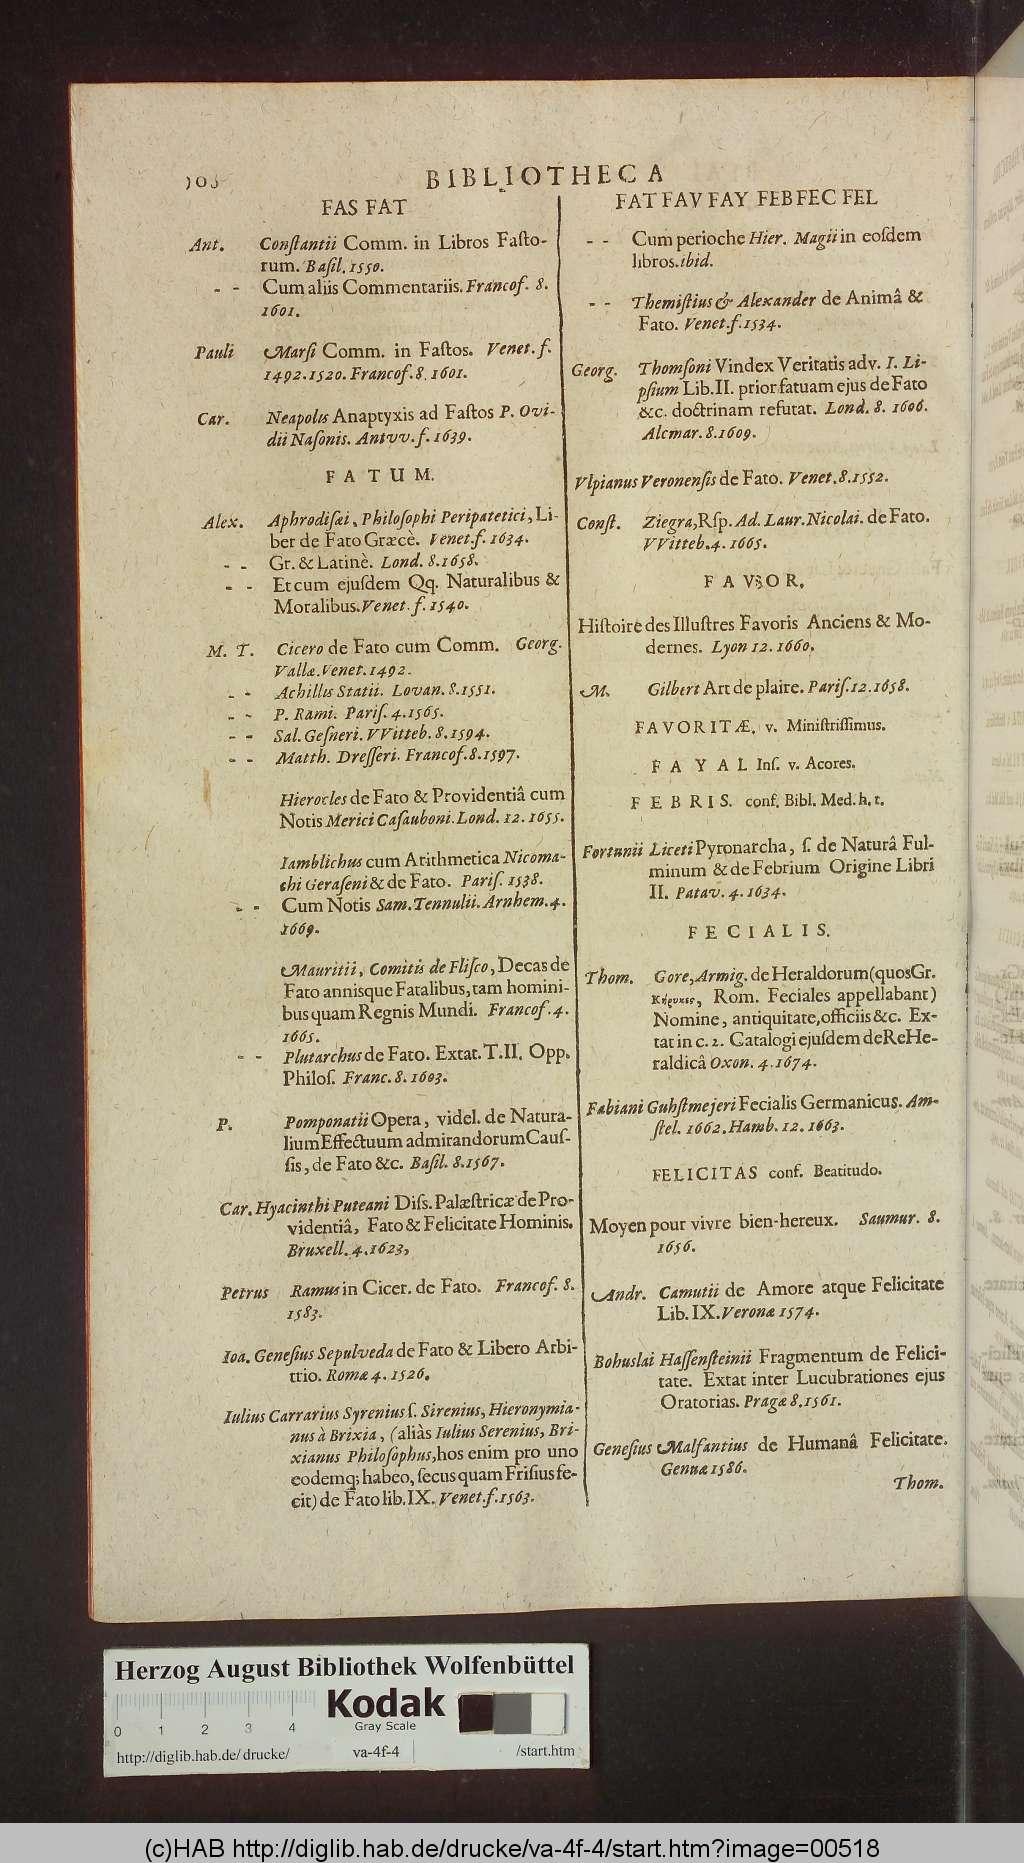 BIBLIOTHECA
FAS FAT
Ant. Conſtantii Comm. in Libros Faſto-
rum. Baſil. 1550.
- - Cum aliis Commentariis. Francof. 8.
1601.
Pauli Marſi Comm. in Faſtos. Venet. f.
1492. 1520. Francof. 8. 1601.
Car. Neapolis Anaptyxis ad Faſtos P. Ovi-
dii Naſonis. Antvv. f. 1639.
FATUM.
Alex. Aphrodiſæi, Philoſophi Peripatetici, Li-
ber de Fato Græcè. Venet. f. 1634.
- - Gr. & Latinè. Lond. 8. 1658.
- - Et cum ejuſdem Qq. Naturalibus &
Moralibus. Venet. f. 1540.
M. T. Cicero de Fato cum Comm. Georg.
Vallæ. Venet. 1492.
- - Achillis Statii. Lovan. 8. 1551.
- - P. Rami. Pariſ. 4. 1565.
- - Sal. Geſneri. VVitteb. 8. 1594.
- - Matth. Dreſſeri. Francof. 8. 1597.
Hierocles de Fato & Providentiâ cum
Notis Merici Caſauboni. Lond. 12. 1655.
Iamblichus cum Arithmetica Nicoma-
chi Geraſeni & de Fato. Pariſ. 1538.
- - Cum Notis Sam. Tennulii. Arnhem. 4.
1669.
Mauritii, Comitis de Fliſco, Decas de
Fato annisque Fatalibus, tam homini-
bus quam Regnis Mundi. Francof. 4.
1665.
- - Plutarchus de Fato. Extat. T. II. Opp.
Philoſ. Franc. 8. 1603.
P. Pomponatii Opera, videl. de Natura-
lium Effectuum admirandorum Cauſ-
ſis, de Fato &c. Baſil. 8. 1567.
Car. Hyacinthi Puteani Diſs. Palæſtricæ de Pro-
videntiâ, Fato & Felicitate Hominis.
Bruxell. 4. 1623,
Petrus Ramus in Cicer. de Fato. Francof. 8.
1583.
Ioa. Geneſius Sepulveda de Fato & Libero Arbi-
trio. Romæ 4. 1526.
Iulius Carrarius Syrenius ſ. Sirenius, Hieronymia-
nus à Brixia, (aliàs Iulius Serenius, Bri-
xianus Philoſophus, hos enim pro uno
eodemq; habeo, ſecus quam Friſius fe-
cit) de Fato lib. IX. Venet. f. 1563.
FAT FAV FAY FEB FEC FEL
- - Cum perioche Hier. Magii in eoſdem
libros. ibid.
- - Themiſtius & Alexander de Animâ &
Fato. Venet. f. 1534.
Georg. Thomſoni Vindex Veritatis adv. I. Li-
pſium Lib. II. prior fatuam ejus de Fato
&c. doctrinam refutat. Lond. 8. 1606.
Alcmar. 8. 1609.
Vlpianus Veronenſis de Fato. Venet. 8. 1552.
Conſt. Ziegra, Rſp. Ad. Laur. Nicolai. de Fato.
VVitteb. 4. 1665.
FAVOR.
Hiſtoire des Illuſtres Favoris Anciens & Mo-
dernes. Lyon 12. 1660.
M. Gilbert Art de plaire. Pariſ. 12. 1658.
FAVORITÆ. v. Miniſtriſſimus.
FAYAL Inſ. v. Acores.
FEBRIS. conf. Bibl. Med. h. t.
Fortunii Liceti Pyronarcha, ſ. de Naturâ Ful-
minum & de Febrium Origine Libri
II. Patav. 4. 1634.
FECIALIS.
Thom. Gore, Armig. de Heraldorum (quos Gr.
Κήρυκες, Rom. Feciales appellabant)
Nomine, antiquitate, officiis &c. Ex-
tat in c. 2. Catalogi ejuſdem de Re He-
raldicâ Oxon. 4. 1674.
Fabiani Guhſtmejeri Fecialis Germanicus. Am-
ſtel. 1662. Hamb. 12. 1663.
FELICITAS conf. Beatitudo.
Moyen pour vivre bien-hereux. Saumur. 8.
1656.
Andr. Camutii de Amore atque Felicitate
Lib. IX. Veronæ 1574.
Bohuslai Haſſenſteinii Fragmentum de Felici-
tate. Extat inter Lucubrationes ejus
Oratorias. Pragæ 8. 1561.
Geneſius Malfantius de Humanâ Felicitate.
Genuæ 1586.
Thom.
Herzog August Bibliothek Wolfenbüttel
Kodak
Gray Scale
0 1 2 3 4
http://diglib.hab.de/drucke/ va-4f-4 /start.htm
(c)HAB http://diglib.hab.de/drucke/va-4f-4/start.htm?image=00518